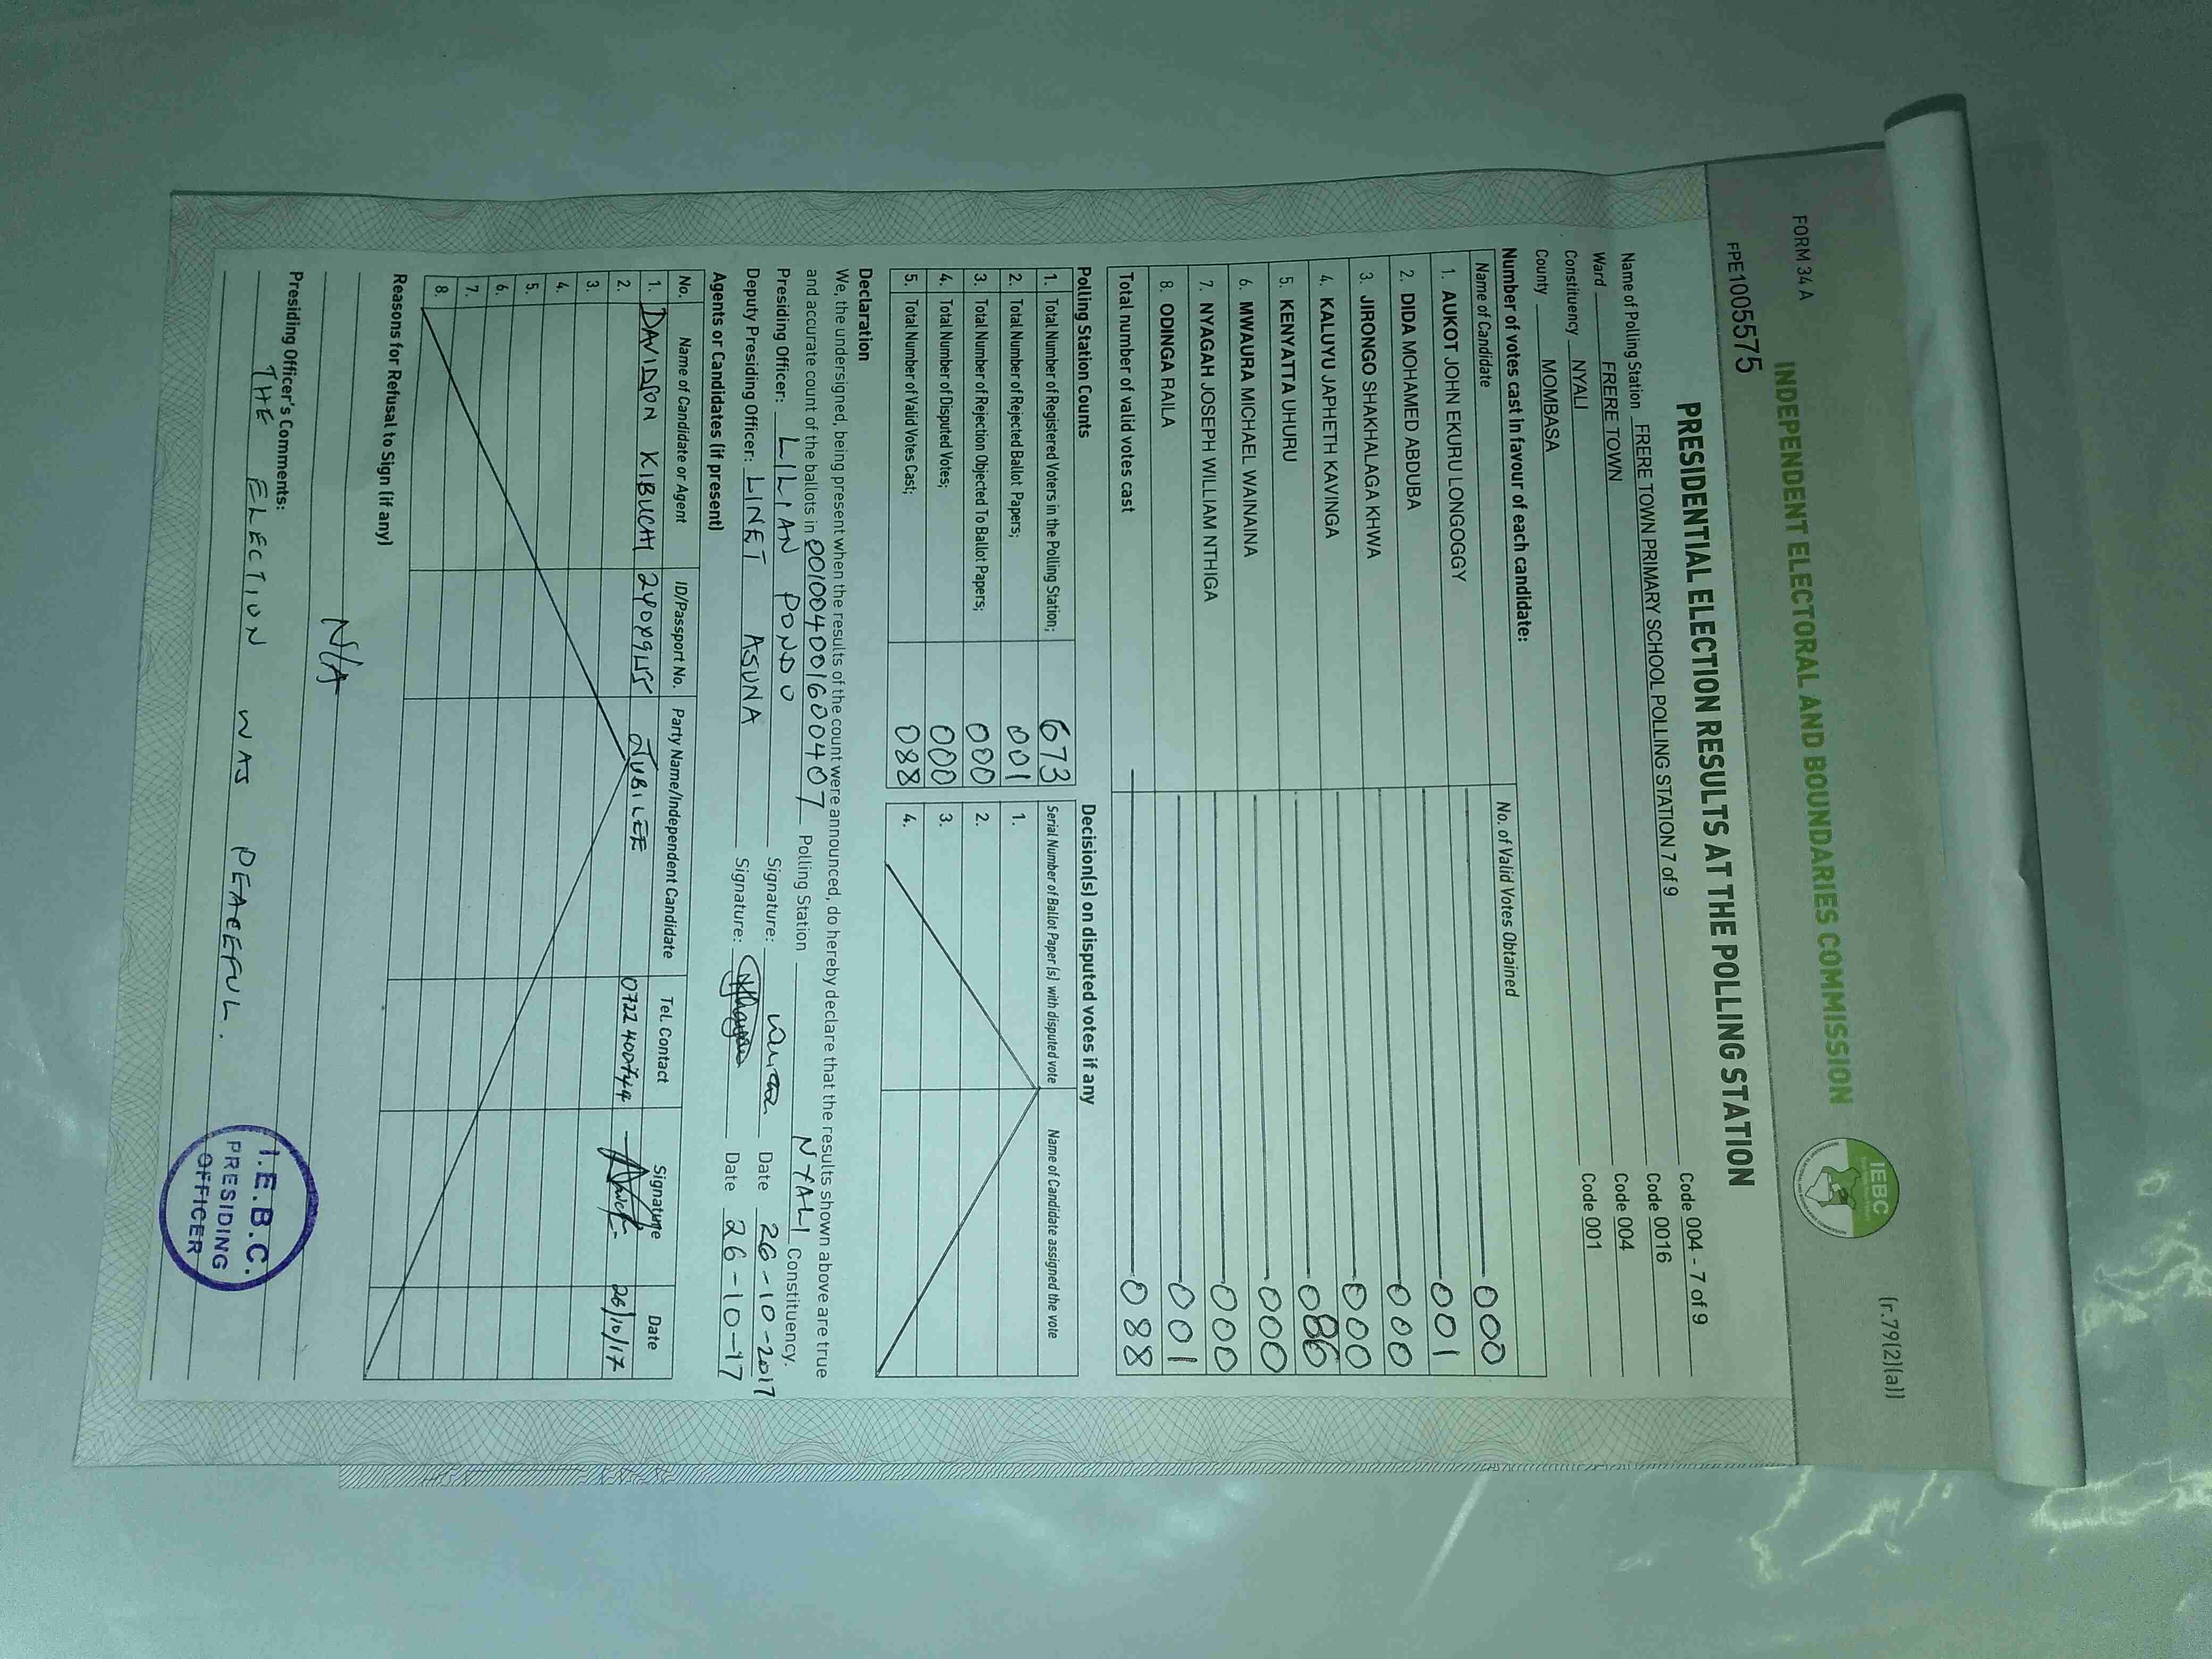 FORM 34 A
(r.79(2)(a))
INDEPENDENT ELECTORAL AND BOUNDARIES COMMISSION
IEBC
FPE1005575
PRESIDENTIAL ELECTION RESULTS AT THE POLLING STATION
Name of Polling Station FRERE TOWN PRIMARY SCHOOL POLLING STATION 7 of 9 Code 004 - 7 of 9
Ward FRERE TOWN Code 0016
Constituency NYALI Code 004
County MOMBASA Code 001
Number of votes cast in favour of each candidate:
Name of Candidate No. of Valid Votes Obtained
1. AUKOT JOHN EKURU LONGOGGY 000
2. DIDA MOHAMED ABDUBA 001
3. JIRONGO SHAKHALAGA KHWA 000
4. KALUYU JAPHETH KAVINGA 000
5. KENYATTA UHURU 086
6. MWAURA MICHAEL WAINAINA 000
7. NYAGAH JOSEPH WILLIAM NTHIGA 000
8. ODINGA RAILA 001
Total number of valid votes cast 088
Polling Station Counts
1. Total Number of Registered Voters in the Polling Station; 673
2. Total Number of Rejected Ballot Papers; 001
3. Total Number of Rejection Objected To Ballot Papers; 000
4. Total Number of Disputed Votes; 000
5. Total Number of Valid Votes Cast; 088
Decision(s) on disputed votes if any
Serial Number of Ballot Paper (s) with disputed vote Name of Candidate assigned the vote
1.
2.
3.
4.
Declaration
We, the undersigned, being present when the results of the count were announced, do hereby declare that the results shown above are true
and accurate count of the ballots in 001004001600407 Polling Station NYALI Constituency.
Presiding Officer: LILIAN PONDO Signature: Date 26-10-2017
Deputy Presiding Officer: LINET ASUNA Signature: Date 26-10-17
Agents or Candidates (if present)
No. Name of Candidate or Agent ID/Passport No. Party Name/Independent Candidate Tel. Contact Signature Date
1. DAVIDSON KIBUCHI JUBILEE 26/10/17
2.
3.
4.
5.
6.
7.
8.
Reasons for Refusal to Sign (if any)
N/A
Presiding Officer's Comments:
THE ELECTION WAS PEACEFUL.
I.E.B.C.
PRESIDING
OFFICER